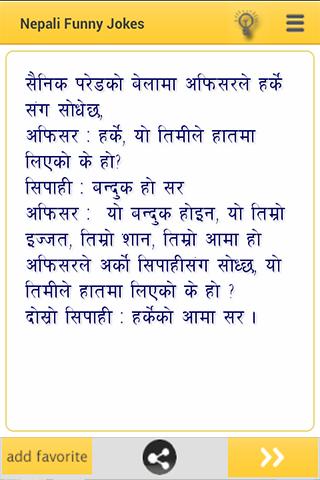 Nepali Funny Jokes
सैनिक परेडको बेलामा अफिसरले हर्के
संग सोधेछ,
अफिसर : हर्के, यो तिमीले हातमा
लिएको के हो?
सिपाही : बन्दुक हो सर
अफिसर :  यो बन्दुक होइन, यो तिम्रो
इज्जत, तिम्रो शान, तिम्रो आमा हो
अफिसरले अर्को सिपाहीसंग सोध्छ, यो
तिमीले हातमा लिएको के हो ?
दोस्रो सिपाही : हर्केको आमा सर ।
add favorite